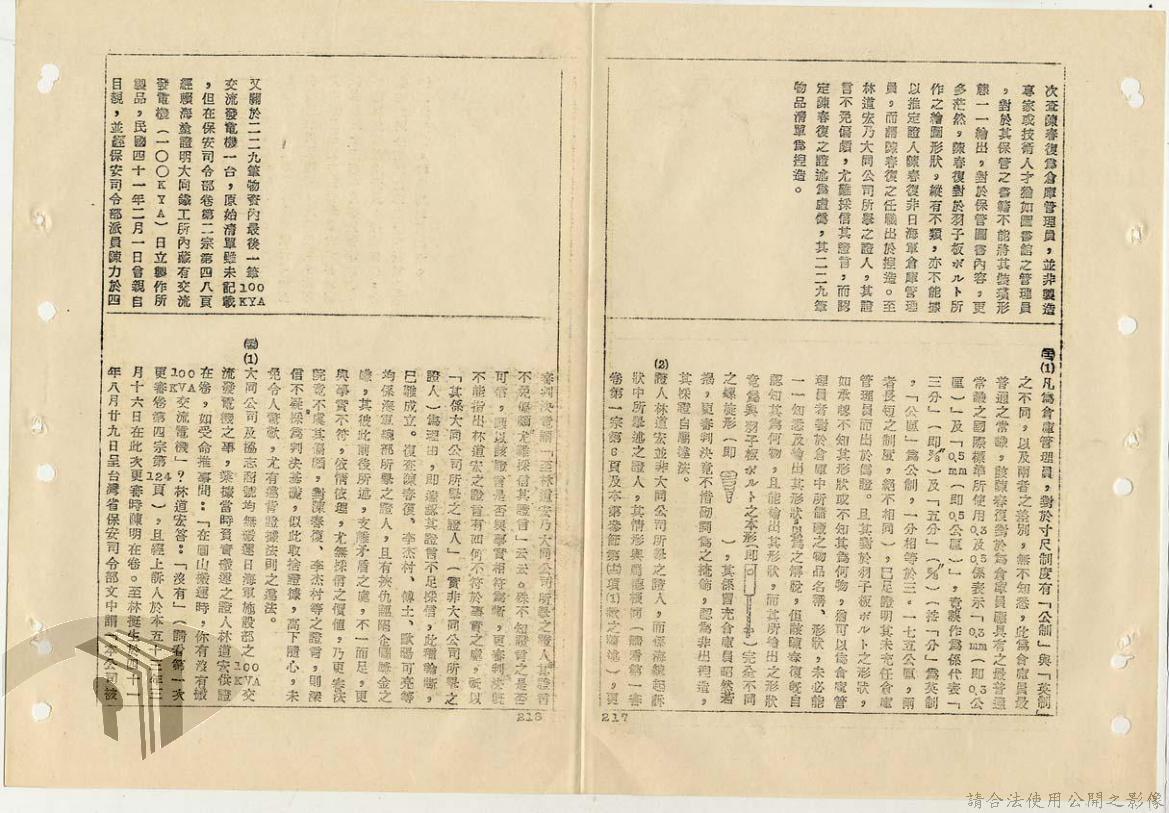 次查陳春復為倉庫管理員,並非製造
專家或技術人才猶如圖書館之管理員
,對於其保管之書籍不能將其裝璜形
態一一繪出,對於保管圖書內容,更
多茫然,陳春復對於羽子板ボルト所
作之繪圖形狀,縱有不類,亦不能據
以推定證人陳春復非日海軍倉庫管理
員,而謂陳春復之任職出於捏造。至
林道宏乃大同公司所舉之證人,其證
言不免偏頗,尤難採信其證言,而認
定陳春復之證述為虛偽,其二二九筆
物品清單為捏造。
(1)凡為倉庫管理員,對於寸尺制度有「公制」與「英制」
之不同,以及兩者之差別,無不知悉,此為倉庫員最
普通之常識,詎陳春復對於為倉庫員應具有之最普通
常識之國際標準所使用0.3及0.5係表示「0.3mm(即0.3公
厘)」及「0.5mm(即0.5公厘)」,竟製作為係代表「
三分」(即⅜")及「五分」(⅝")(括「分」為英制
,「公厘」為公制,一分相等於三.一七五公厘,兩
者長短之制度,絕不相同),已足證明其未充任倉庫
管理員而出於偽證。且其對於羽子板ボルト之形狀,
如承認不知其形狀或不知其為何物,猶可以倉庫管
理員者對於倉庫中所儲藏之物品名稱、形狀,未必能
一一知悉及繪出其形狀,以為之解脫,但該陳春復既自
認知其為何物,且能繪出其形狀,而其所繪出之形狀
竟為與羽子板ボルト之本形即( )完全不同
之螺旋形(即( ),其係冒充倉庫員昭然若
揭,更審判決竟不惜砌詞為之掩飾,認為非出捏造,
其採證自屬違法。
(2)證人林道宏並非大同公司所舉之證人,而係海總起訴
狀中所舉述之證人,其情形與周德複同(請看第一審
卷第一宗第6頁及本第參節第㈩項(1)款之陳述),更
217
又關於二二九筆物資內最後一筆100KVA
交流發電機一台,原始清單雖未記載
,但在保安司令部卷第二宗第四八頁
經賴海滄證明大同鐵工所內藏有交流
發電機(一〇〇KVA)日立製作所
製品,民國四十一年二月一日曾親自
目視,並經保安司令部派員陳力於四
審判決竟謂「至林道宏乃大同公司所舉之證人其證言
不免偏頗尤難採信其證言」云云。殊不知證言之是否
可信,應以該證言是否與事實相符為斷,更審判決既
不能指出林道宏之證言有如何不符於事實之處,祇以
「其係大同公司所舉之證人」(實非大同公司所舉之
證人)為理由,即遽認其證言不足採信,此種論斷,
已難成立。復查陳春復、李杰村、傅土、歐陽可亮等
均係海軍總部所舉之證人,且有挾仇誣陷企圖獎金之
嫌,其彼此前後所述,支離矛盾之處,不一而足,更
與事實不符,依情依理,尤無採信之價值,乃更審法
院竟不慮其偏頗,對陳春復、李杰村等之證言,則深
信不疑採為判決基礎,似此取捨證據,高下隨心,未
免令人驚歎,尤有違背證據法則之違法。
(1)大同公司及協志商號均無搬運日海軍施設部之100KVA交
流發電機之事,業據當時負責搬運之證人林道宏供證
在卷,如受命推事問:「在圓山搬運時,你有沒有搬
100KVA交流電機」?林道宏答:「沒有」(請看第一次
更審卷第四宗第124頁),且經上訴人於本五十三年三
月十六日在此次更審時陳明在卷。至林挺生於四十一
年八月廿九日呈台灣省保安司令部文中謂「本公司被
218
請合法使用公開之影像